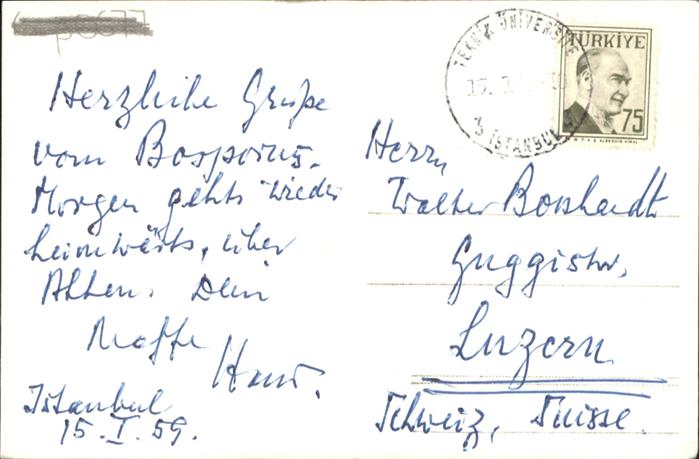 Herzliche Grüße
vom Bosporus.
Morgen gehts wieder
heimwärts, über
Athen. Dein
Neffe
Hans.
Istanbul
15. I. 59.
TEKNİK ÜNİVERSİTE
İSTANBUL
TÜRKİYE
75
Herrn
Walter Bosshardt
Guggistr.
Luzern
Schweiz, Suisse.